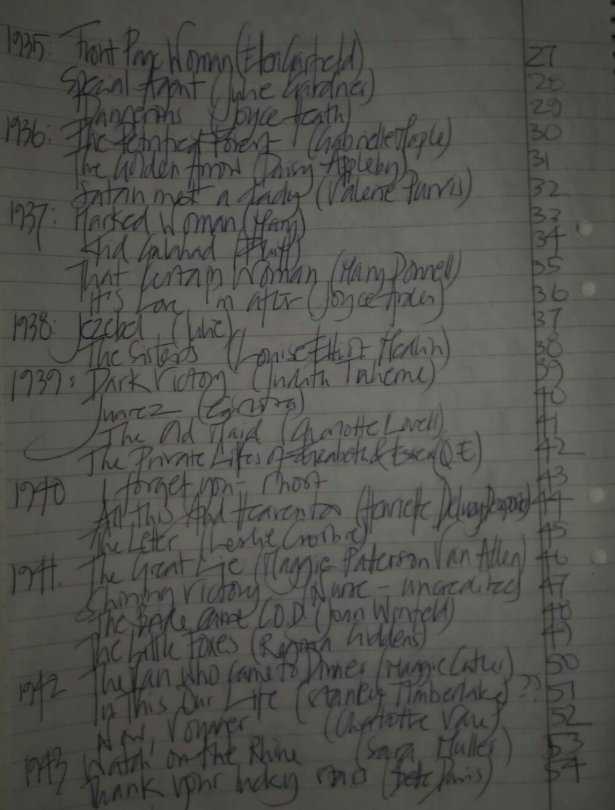 1935: Front Page Woman (Ellen Garfield) 27
Special Agent (Julie Gardner) 28
Dangerous (Joyce Heath) 29
1936: The Petrified Forest (Gabrielle Maple) 30
The Golden Arrow (Daisy Appleby) 31
Satan met a Lady (Valerie Purvis) 32
1937: Marked Woman (Mary) 33
Kid Galahad (Fluff) 34
That Certain Woman (Mary Donnell) 35
It's Love I'm after (Joyce Arden) 36
1938: Jezebel (Julie) 37
The Sisters (Louise Elliot Medlin) 38
1939: Dark Victory (Judith Traherne) 39
Juarez (Carlotta) 40
The Old Maid (Charlotte Lovell) 41
The Private Lifes of Elizabeth & Essex (QE) 42
1940 I forget you - Short 43
All this And Heaven too (Henriette Deluzy Desportes) 44
The Leter (Leslie Crosbie) 45
1941. The Great Lie (Maggie Paterson Van Allen) 46
Shining Victory (Nurse - uncredited) 47
The Bride Came C.O.D (Joan Winfield) 48
The Little Foxes (Regina Giddens) 49
1942 The Man who came to Dinner (Maggie Cutler) 50
In This Our Life (Stanley Timberlake) ?? 51
Now, Voyager (Charlotte Vale) 52
1943 Watch on the Rhine (Sara Muller) 53
Thank your lucky stars (Bete Davis) 54